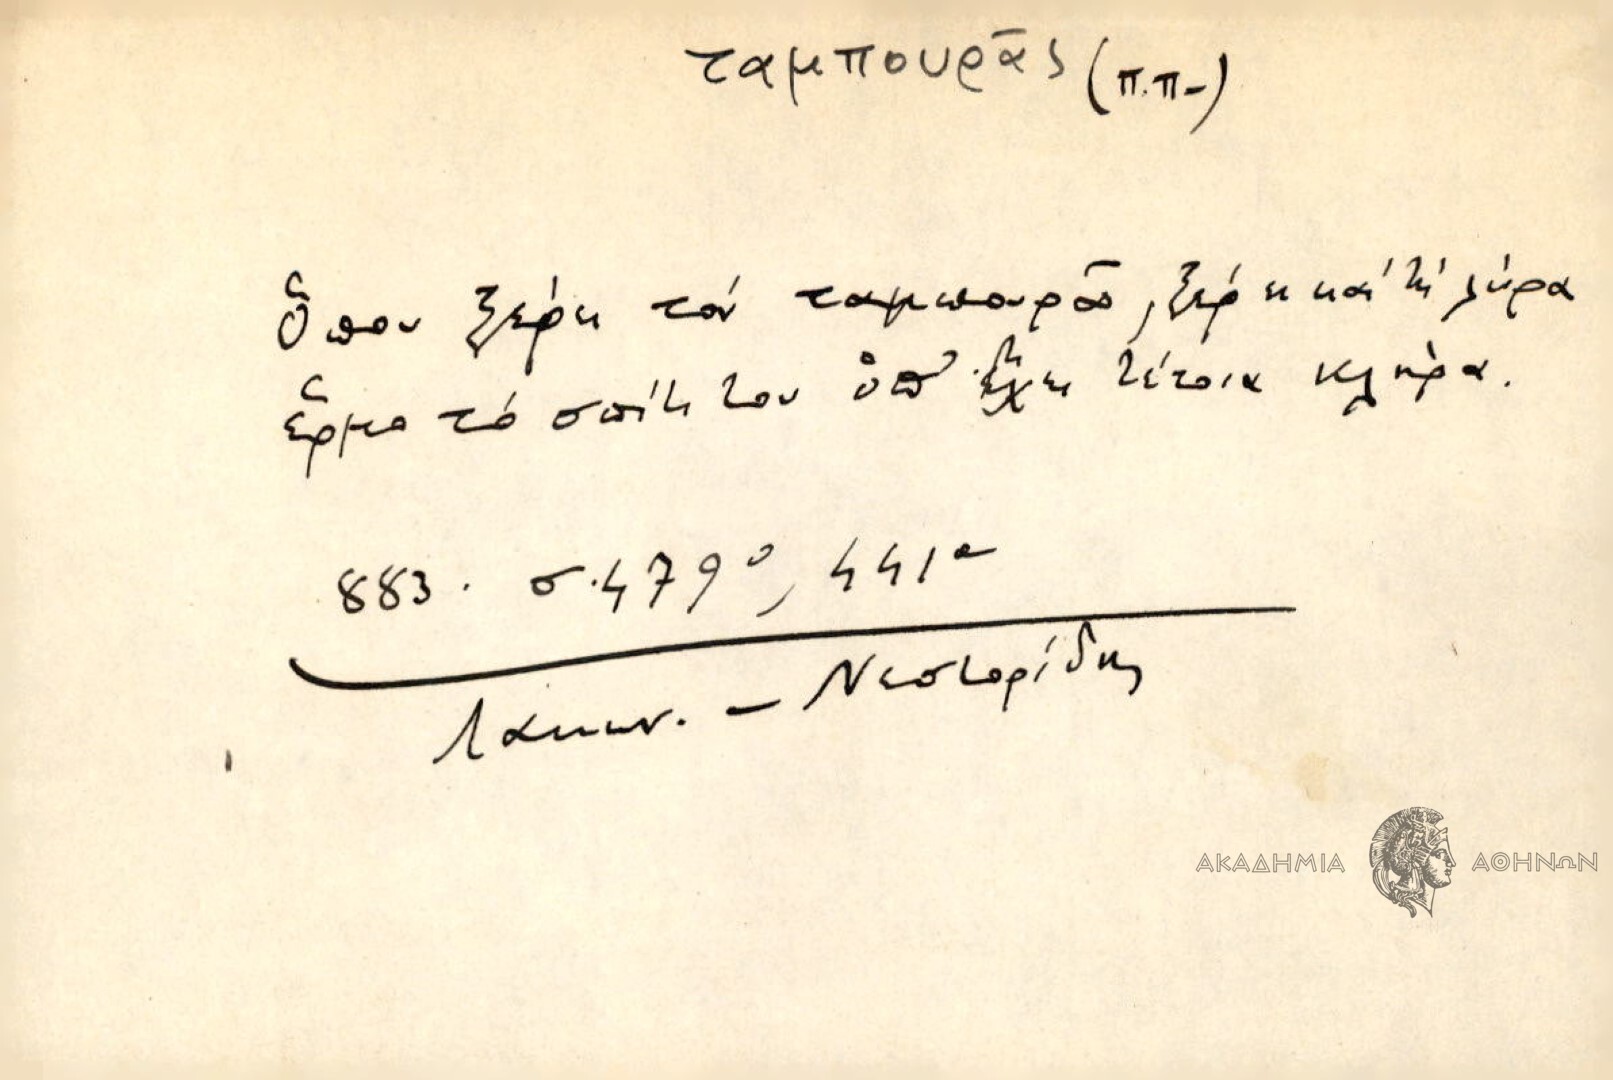 ταμπουρᾶς (π.π-)
Ὅπου ξέρει τόν ταμπουρᾶ, ξέρει καί τή λύρα
ἔρμο τό σπίτι του ὁπ' ἔχει τέτοια κλήρα.
883. σ. 479υ, 441α
Λακων. - Νεστορίδης
ΑΚΑΔΗΜΙΑ ΑΘΗΝΩΝ